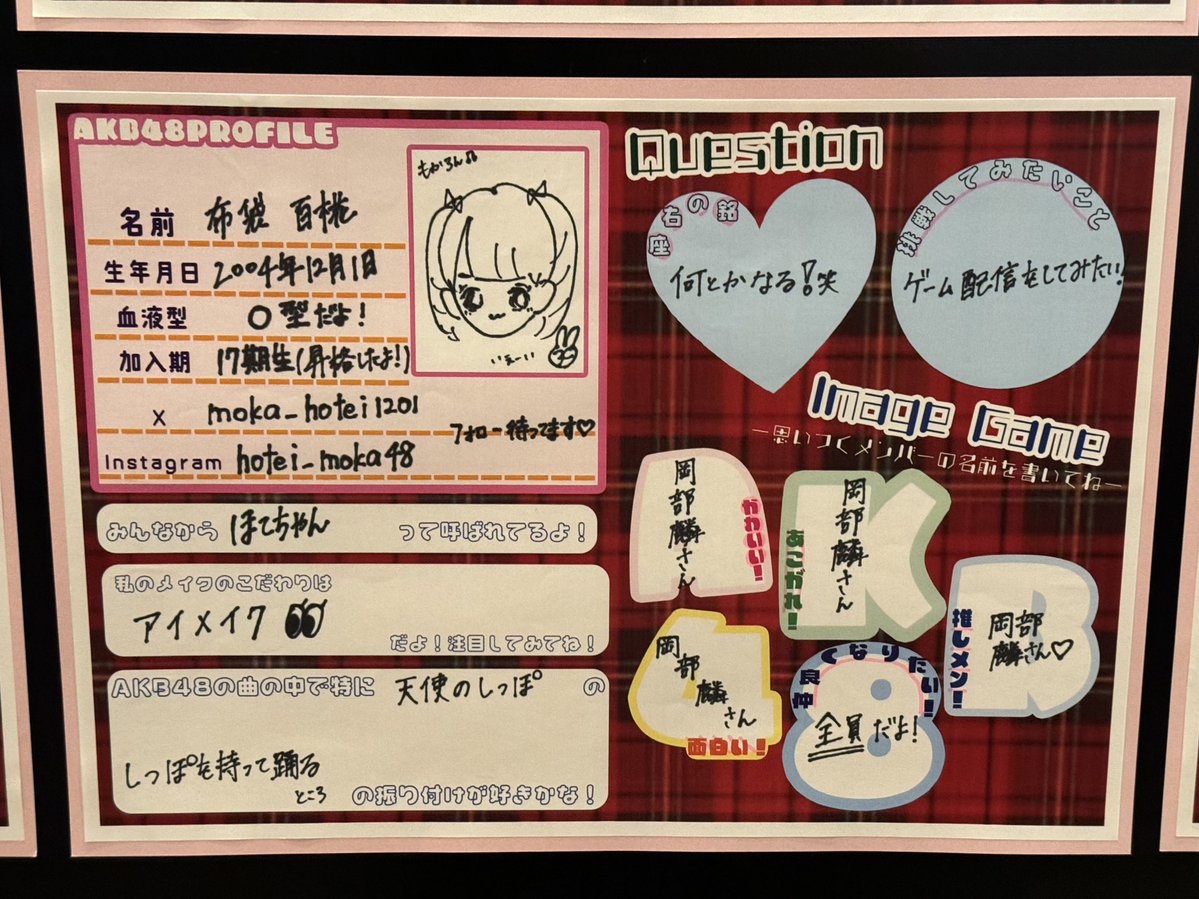 AKB48PROFILE
名前 布袋 百椛
生年月日 2004年12月1日
血液型 O型だよ!
加入期 17期生(昇格したよ!)
X moka_hotei1201
フォロー待ってます♡
Instagram hotei_moka48
もかろん♫
いぇーい
みんなから ほてちゃん って呼ばれてるよ!
私のメイクのこだわりは
アイメイク
だよ!注目してみてね!
AKB48の曲の中で特に 天使のしっぽ の
しっぽを持って踊る
ところ の振り付けが好きかな!
Question
座右の銘
何とかなる!笑
挑戦してみたいこと
ゲーム配信をしてみたい!
Image Game
ー思いつくメンバーの名前を書いてねー
かわいい!
岡部麟さん
あこがれ!
岡部麟さん
推しメン!
岡部
麟さん♡
岡部麟さん
面白い!
仲良くなりたい!
全員だよ!